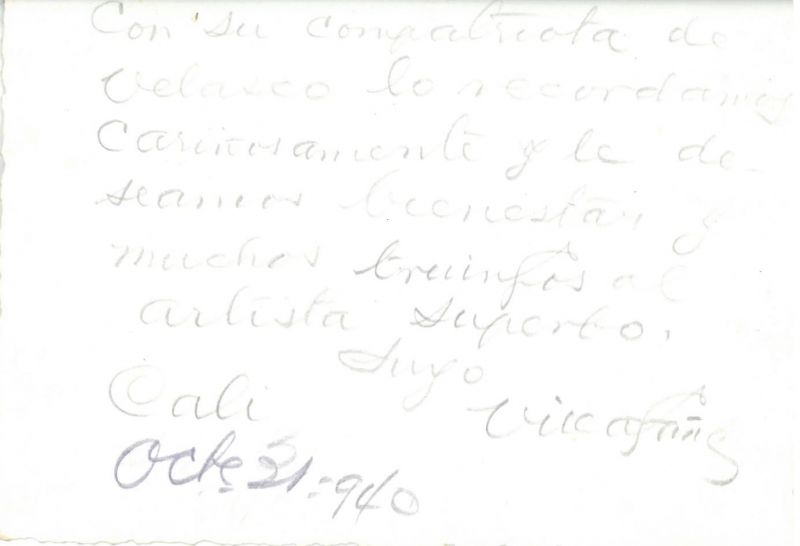 Con su compatriota de
Velasco lo recordamos
Cariñosamente y le de-
seamos bienestar y
muchos truinfos al
artista superbo.
Suyo
Cali Villafañe
Octe 21=940